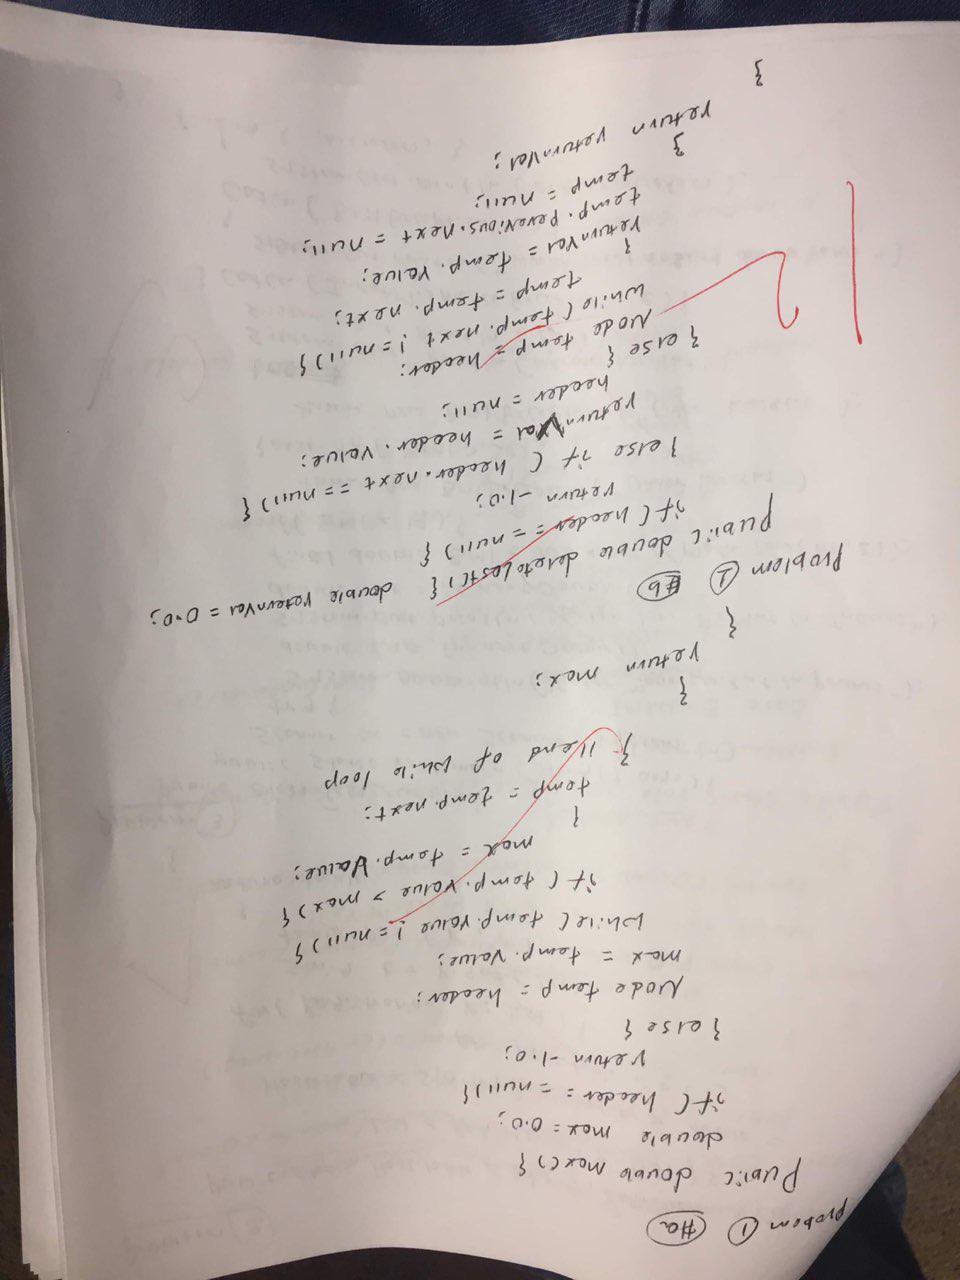 Probem ① #a
Public double max() {
double max = 0.0;
if( header == null) {
return -1.0;
} else {
Node temp = header;
max = temp.value;
while( temp.value != null) {
if ( temp.value > max) {
max = temp.Value;
}
temp = temp.next;
} //end of while loop
}
return max;
}
Problem ① #b
public double deleteLast() { double returnVal = 0.0;
if( header == null) {
return -1.0;
} else if ( header.next == null) {
returnVal = header.value;
header = null;
} else {
Node temp = header;
while ( temp.next != null) {
temp = temp.next;
}
returnVal = temp.value;
temp.perevious.next = null;
temp = null;
}
return returnVal;
}
12